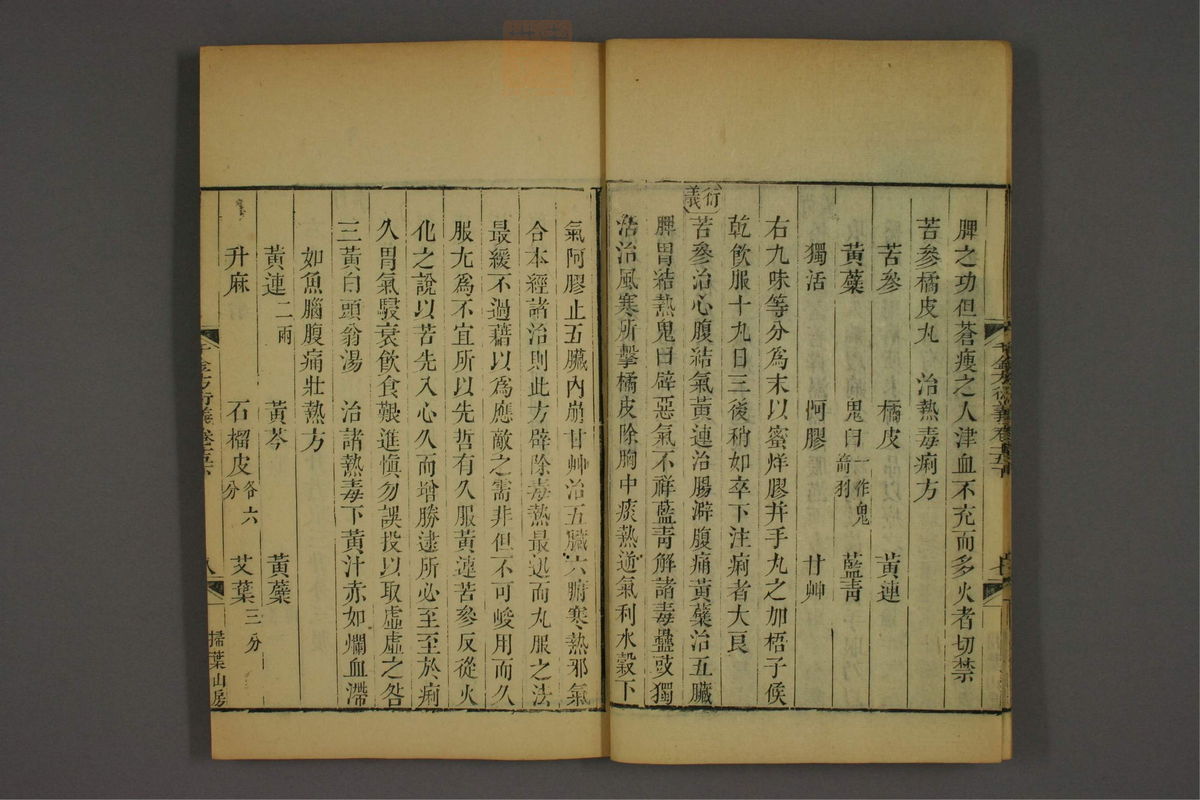 脾之功但蒼瘦之人津血不充而多火者切禁
苦參橘皮丸　治熱毒痢方
苦參　橘皮　黃連
黃蘗　鬼臼一作鬼箭羽　藍青
獨活　阿膠　甘艸
右九味等分爲末以蜜烊膠并手丸之加梧子候
乾飲服十丸日三後稍如卒下注痢者大良
衍義
苦參治心腹結氣黃連治腸澼腹痛黃蘗治五臟
脾胃結熱鬼臼辟惡氣不祥藍青解諸毒蠱豉獨
活治風寒所擊橘皮除胸中痰熱逆氣利水穀下
氣阿膠止五臟內崩甘艸治五臟六腑寒熱邪氣
合本經諸治則此方辟除毒熱最迅而丸服之法
最緩不過藉以爲應敵之需非但不可峻用而久
服尢爲不宜所以先哲有久服黃連苦參反從火
化之說以苦先入心久而增勝逮所必至至於痢
久胃氣駸衰飲食艱進慎勿誤投以取虛虛之咎
三黃白頭翁湯　治諸熱毒下黃汁赤如爛血滯
如魚腦腹痛壯熱方
黃連二兩　黃芩　黃蘗
升麻　石榴皮各六分　艾葉三分
千金方衍義卷十五下　八　掃葉山房